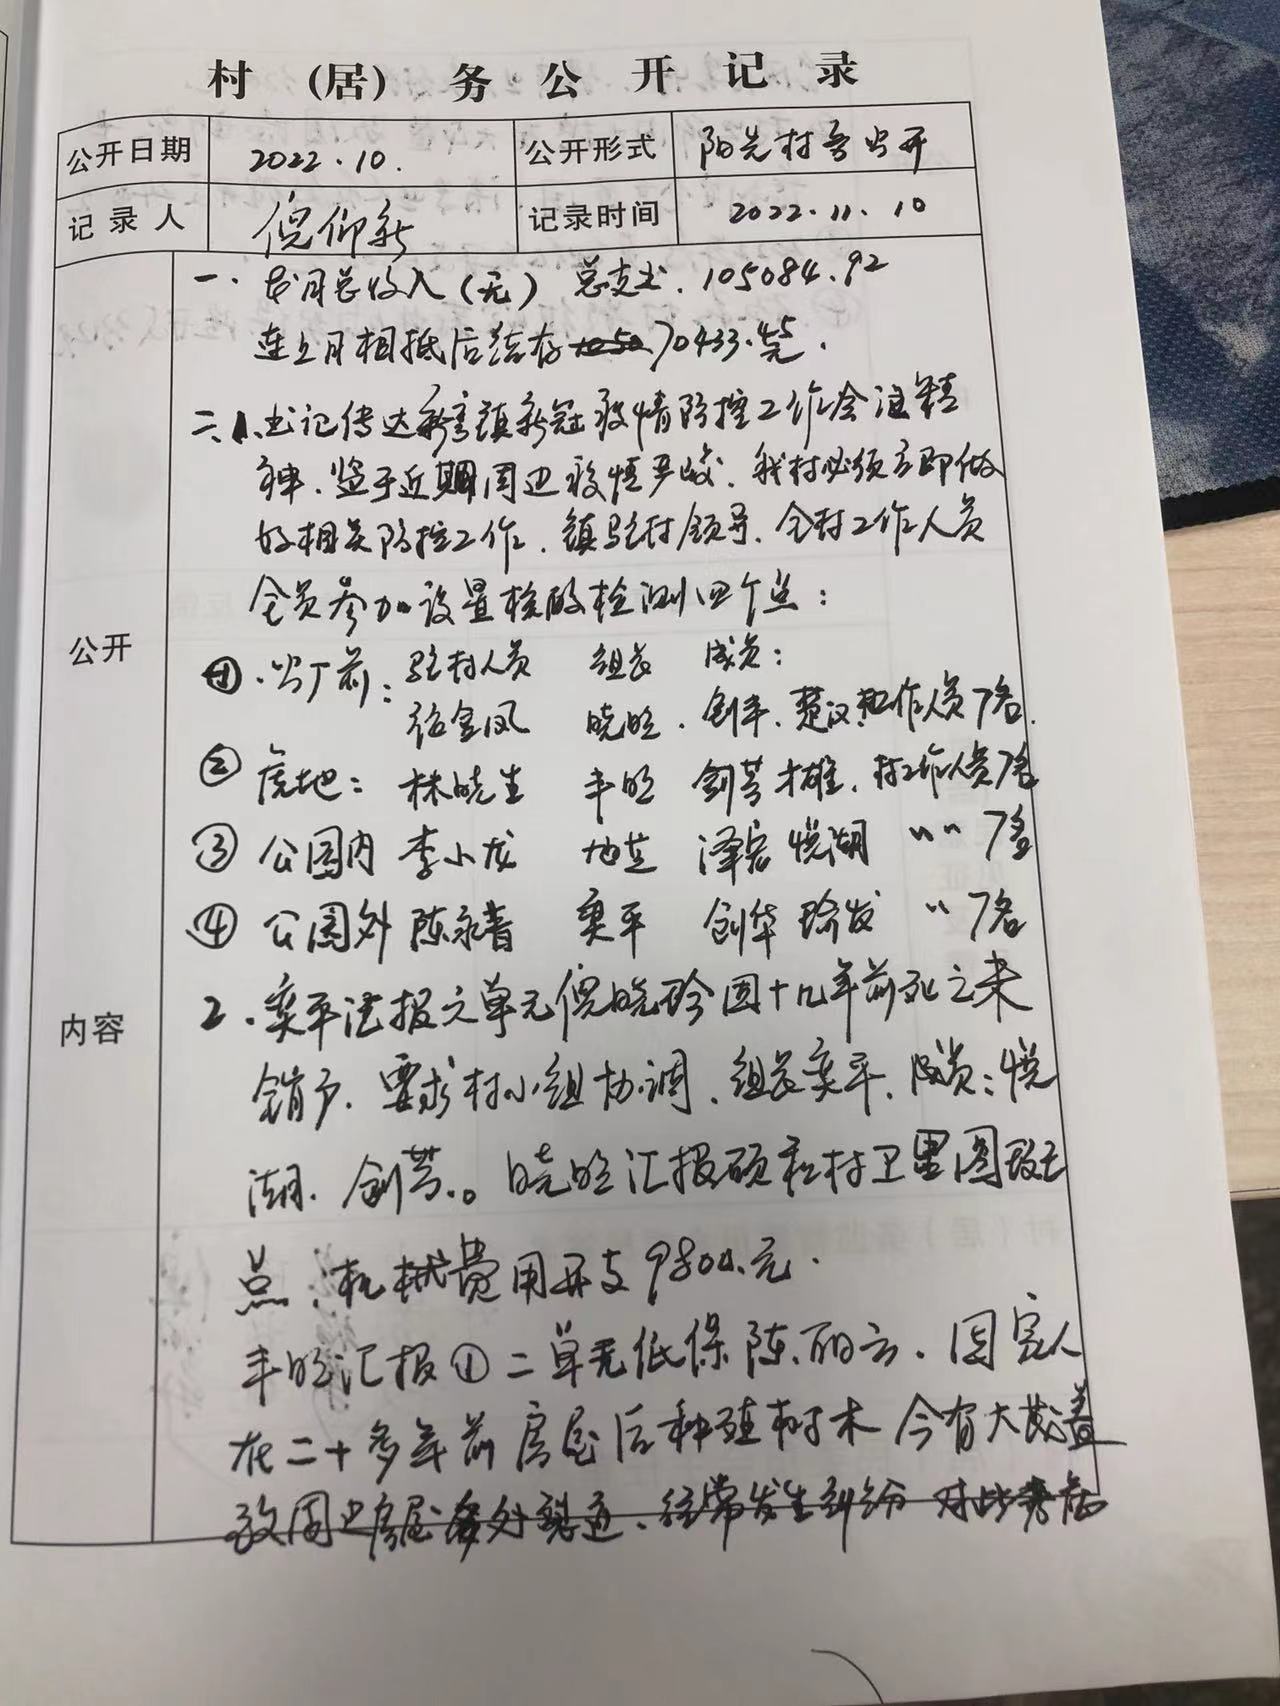 村（居）务公开记录
公开日期 2022.10. 公开形式 阳光村务公开
记录人 倪仰新 记录时间 2022.11.10
一.本月总收入(元) 总支出.105084.92
连上月相抵后结存 70433.45元.
二、1、书记传达新亨镇新冠疫情防控工作会议精
神.鉴于近期周边疫情严峻.我村必须立即做
好相关防控工作.镇驻村领导、全村工作人员
全员参加设置核酸检测四个点：
①. 厂前：驻村人员 组长 成员：
金凤 晓旺.创丰.楚汉和工作人员7名.
② 地：林晓生 丰旺 创芳 雄.村工作人员7名
③ 公园内 李小龙 地芝 泽宏 悦湖 〃〃 7名
④ 公园外 陈永青 奕平 创华 瑜发 〃 7名
2.奕平汇报六单元倪晓玲因十几年前死亡未
销户.要求村小组协调、组长奕平、成员：悦
湖.创芳.。晓旺汇报硕和村卫星图
点：机械费用开支9800.元.
丰旺汇报①二单元低保陈丽云.因家人
在二十多年前房屋后种植树木今有大
致周边房屋 .经常发生纠纷 对此
内容
公开